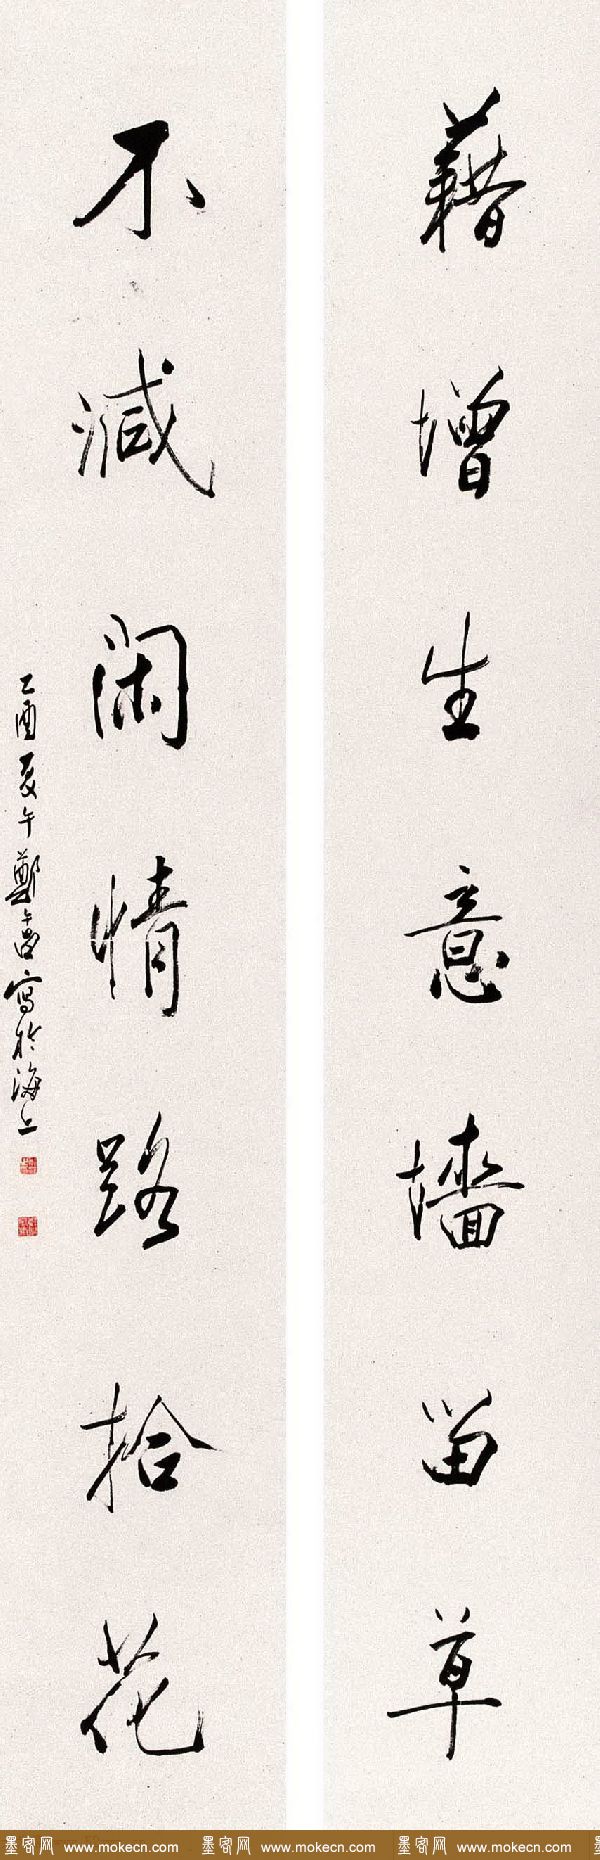 藉增生意墙留草
不减闲情路拾花
乙酉夏午鄭
寫於海上
墨客网 www.mokecn.com 墨客网 www.mokecn.com 墨客网 www.mokecn.com